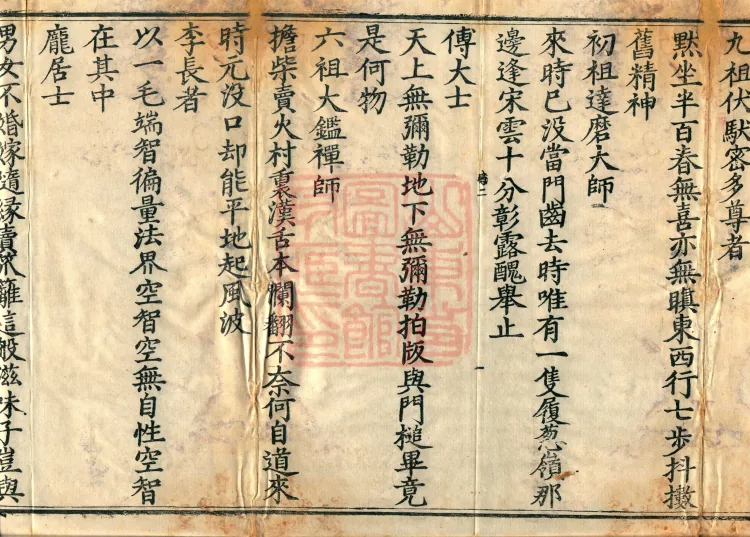 九祖伏馱密多尊者
黙坐半百春無喜亦無瞋東西行七步抖擻
舊精神
初祖達磨大師
來時已没當門齒去時唯有一隻履葱嶺那
邊逢宋雲十分彰露醜舉止
傅大士
天上無彌勒地下無彌勒拍版與門槌畢竟
是何物
六祖大鑑禪師
擔柴賣火村裏漢舌本瀾翻不奈何自道來
時元没口却能平地起風波
李長者
以一毛端智徧量法界空智空無自性空智
在其中
龐居士
男女不婚嫁隨緣賣笊籬這般滋味子豈與